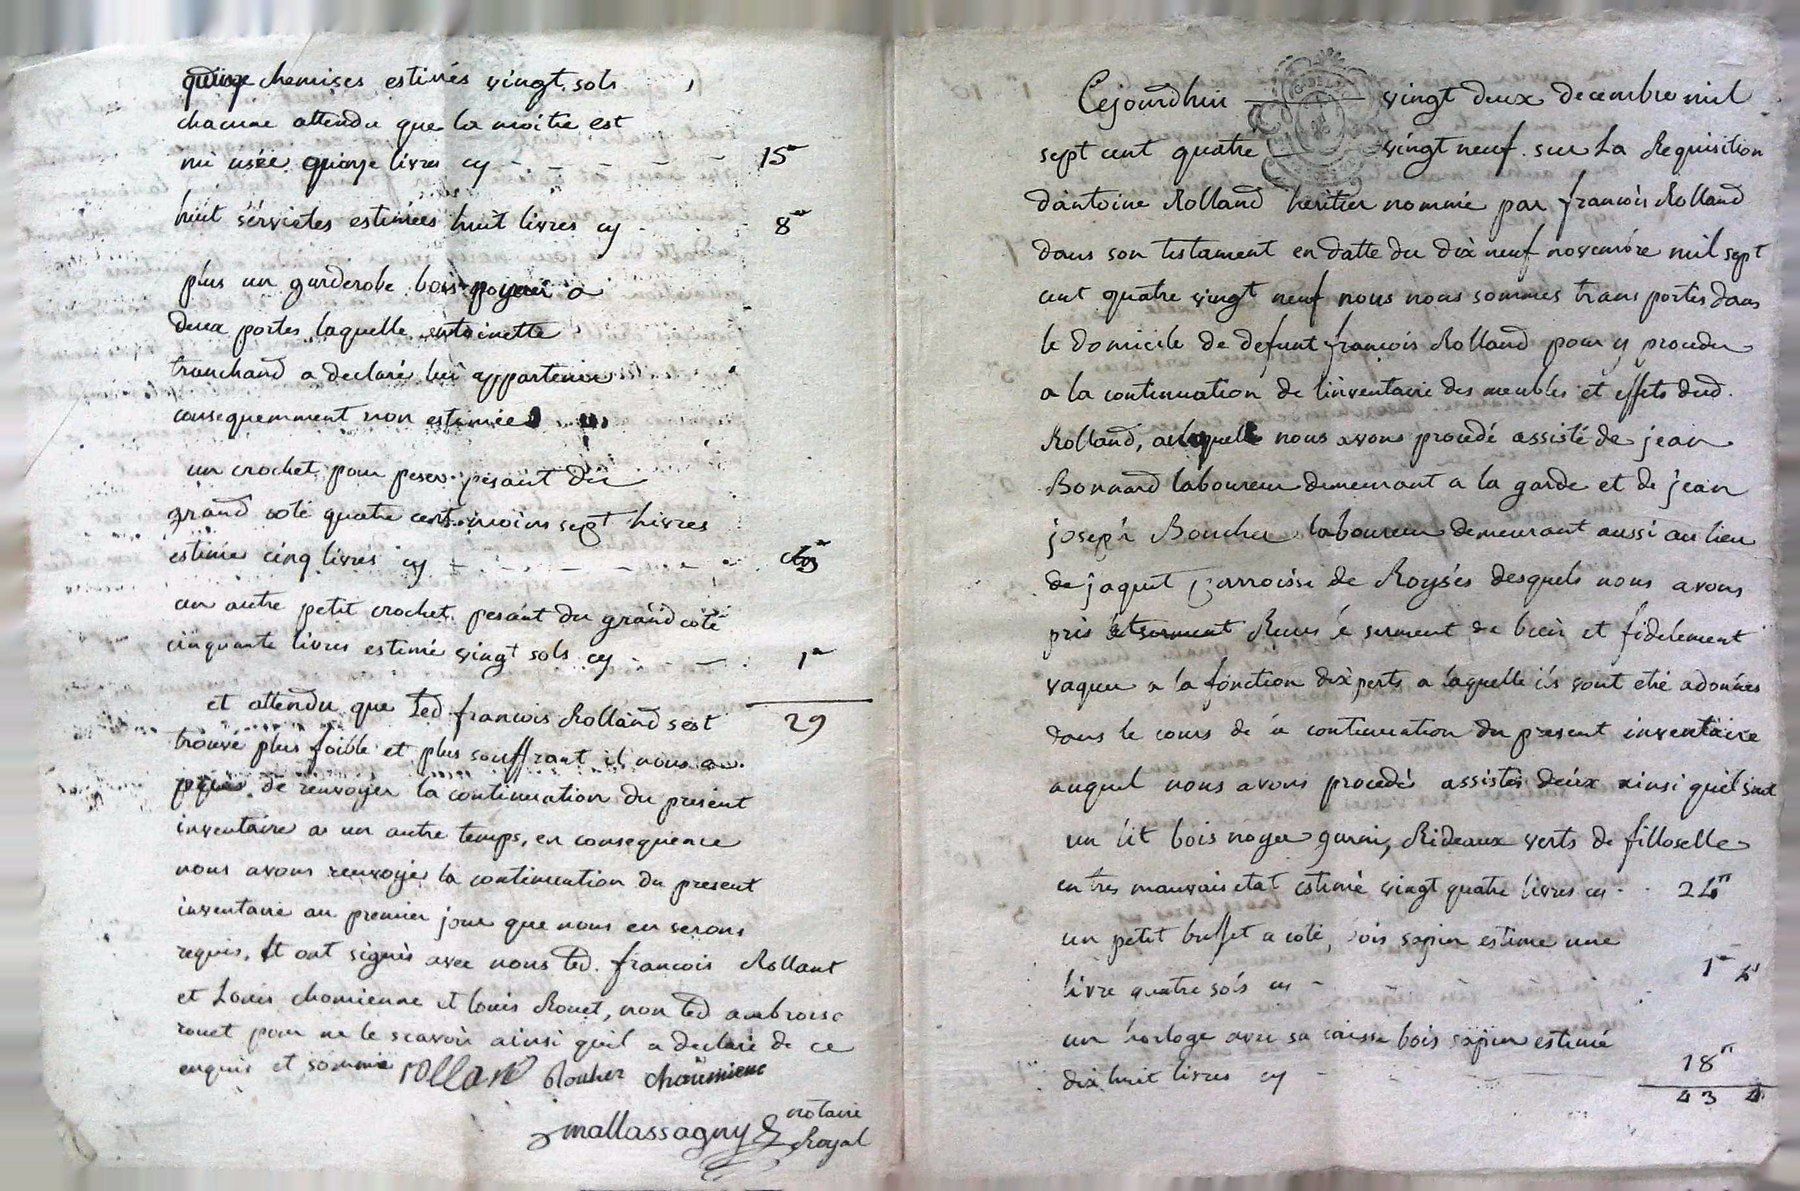 quinze chemises estimés vingt sols
chacune attendu que la moitié est
mi usée quinze livres cy 15#
huit servietes estimées huit livres cy 8#
plus un garderobe bois noyer a
deux portes laquelle antoinette
tranchand a declaré lui appartenir
consequemment non estimée
un crochet pour peser pesant du
grand coté quatre cent moins sept livres
estimé cinq livres cy
un autre petit crochet pesant du grand coté
cinquante livres estimé vingt sols cy 1#
29
et attendu que led françois Rolland sest
trouvé plus foible et plus souffrant il nous a
de renvoyer la continuation du présent
inventaire a un autre temps, en consequence
nous avons renvoyé la continuation du present
inventaire au premier jour que nous en serons
requis, et ont signés avec nous led. françois Rollant
et Louis chomienne et louis Rouet, non led ambroise
rouet pour ne le scavoir ainsi quil a declaré de ce
enquis et sommé rolland chaumienne
mallassagny notaire
Royal
Cejourdhui vingt deux decembre mil
sept cent quatre vingt neuf. sur La Requisition
dantoine Rolland héritier nommé par françois Rolland
dans son testament en datte du dix neuf novembre mil sept
cent quatre vingt neuf nous nous sommes transportés dans
le domicile de defunt françois Rolland pour y proceder
a la continuation de l'inventaire des meubles et effets dud.
Rolland, a laquelle nous avons procedé assisté de jean
Bonnard laboureur demeurant a la garde et de jean
joseph Boucher laboureur demeurant aussi au lieu
de jaquet parroisse de Royses desquels nous avons
pris et Recus le serment de bien et fidelement
vaquer a la fonction dexperts a laquelle ils sont eté adonnés
dans le cours de la continuation du present inventaire
auquel nous avons procedé assistés deux ainsi quil suit
un lit bois noyer garni, Rideaux verts de filloselle
en tres mauvais etat estimé vingt quatre livres cy 24#
un petit buffet a coté, bois sapin estimé une
livre quatre sols cy 1# 4s
un horloge avec sa caisse bois sapin estimé
dix huit livres cy 18#
43 4